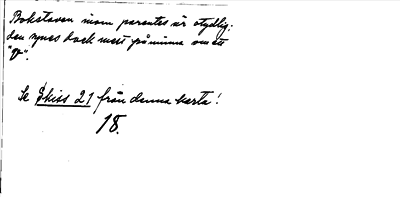 Bokstaven inom parentes är otydlig;
den synes dock mest påminna om ett
"V".
Se Skiss 21 från denna karta!
18.